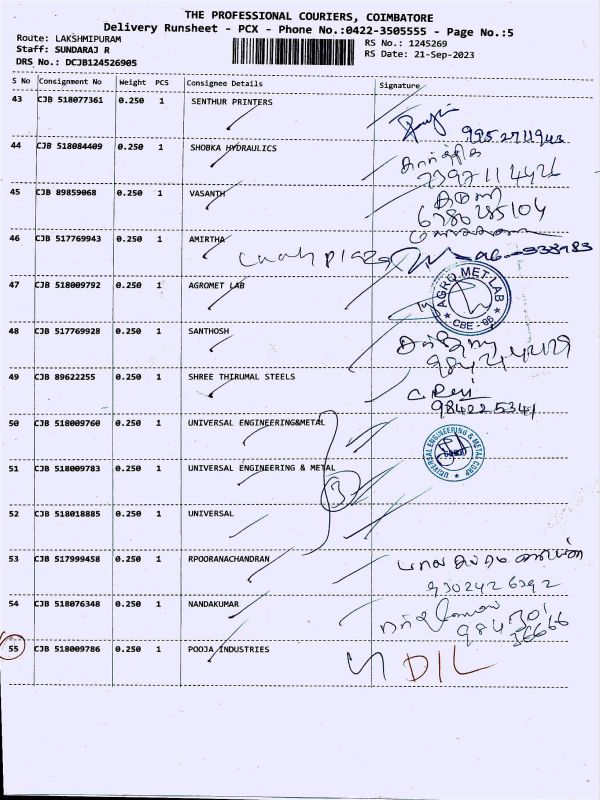 THE PROFESSIONAL COURIERS, COIMBATORE
Delivery Runsheet - PCX - Phone No.:0422-3505555 - Page No.:5
Route: LAKSHMIPURAM
RS No.: 1245269
Staff: SUNDARAJ R
RS Date: 21-Sep-2023
DRS No.: DCJB124526905
S No Consignment No Weight PCS Consignee Details Signature
43 CJB 518077361 0.250 1 SENTHUR PRINTERS
44 CJB 518084409 0.250 1 SHOBKA HYDRAULICS
45 CJB 89859068 0.250 1 VASANTH
46 CJB 517769943 0.250 1 AMIRTHA
47 CJB 518009792 0.250 1 AGROMET LAB
AGRO MET LAB
CBE - 06
48 CJB 517769928 0.250 1 SANTHOSH
49 CJB 89622255 0.250 1 SHREE THIRUMAL STEELS
984225341
50 CJB 518009760 0.250 1 UNIVERSAL ENGINEERING&METAL
UNIVERSAL ENGINEERING & METAL CORP
51 CJB 518009783 0.250 1 UNIVERSAL ENGINEERING & METAL
3
52 CJB 518018885 0.250 1 UNIVERSAL
53 CJB 517999458 0.250 1 RPOORANACHANDRAN
9302426392
54 CJB 518076348 0.250 1 NANDAKUMAR
55 CJB 518009786 0.250 1 POOJA INDUSTRIES
DIL